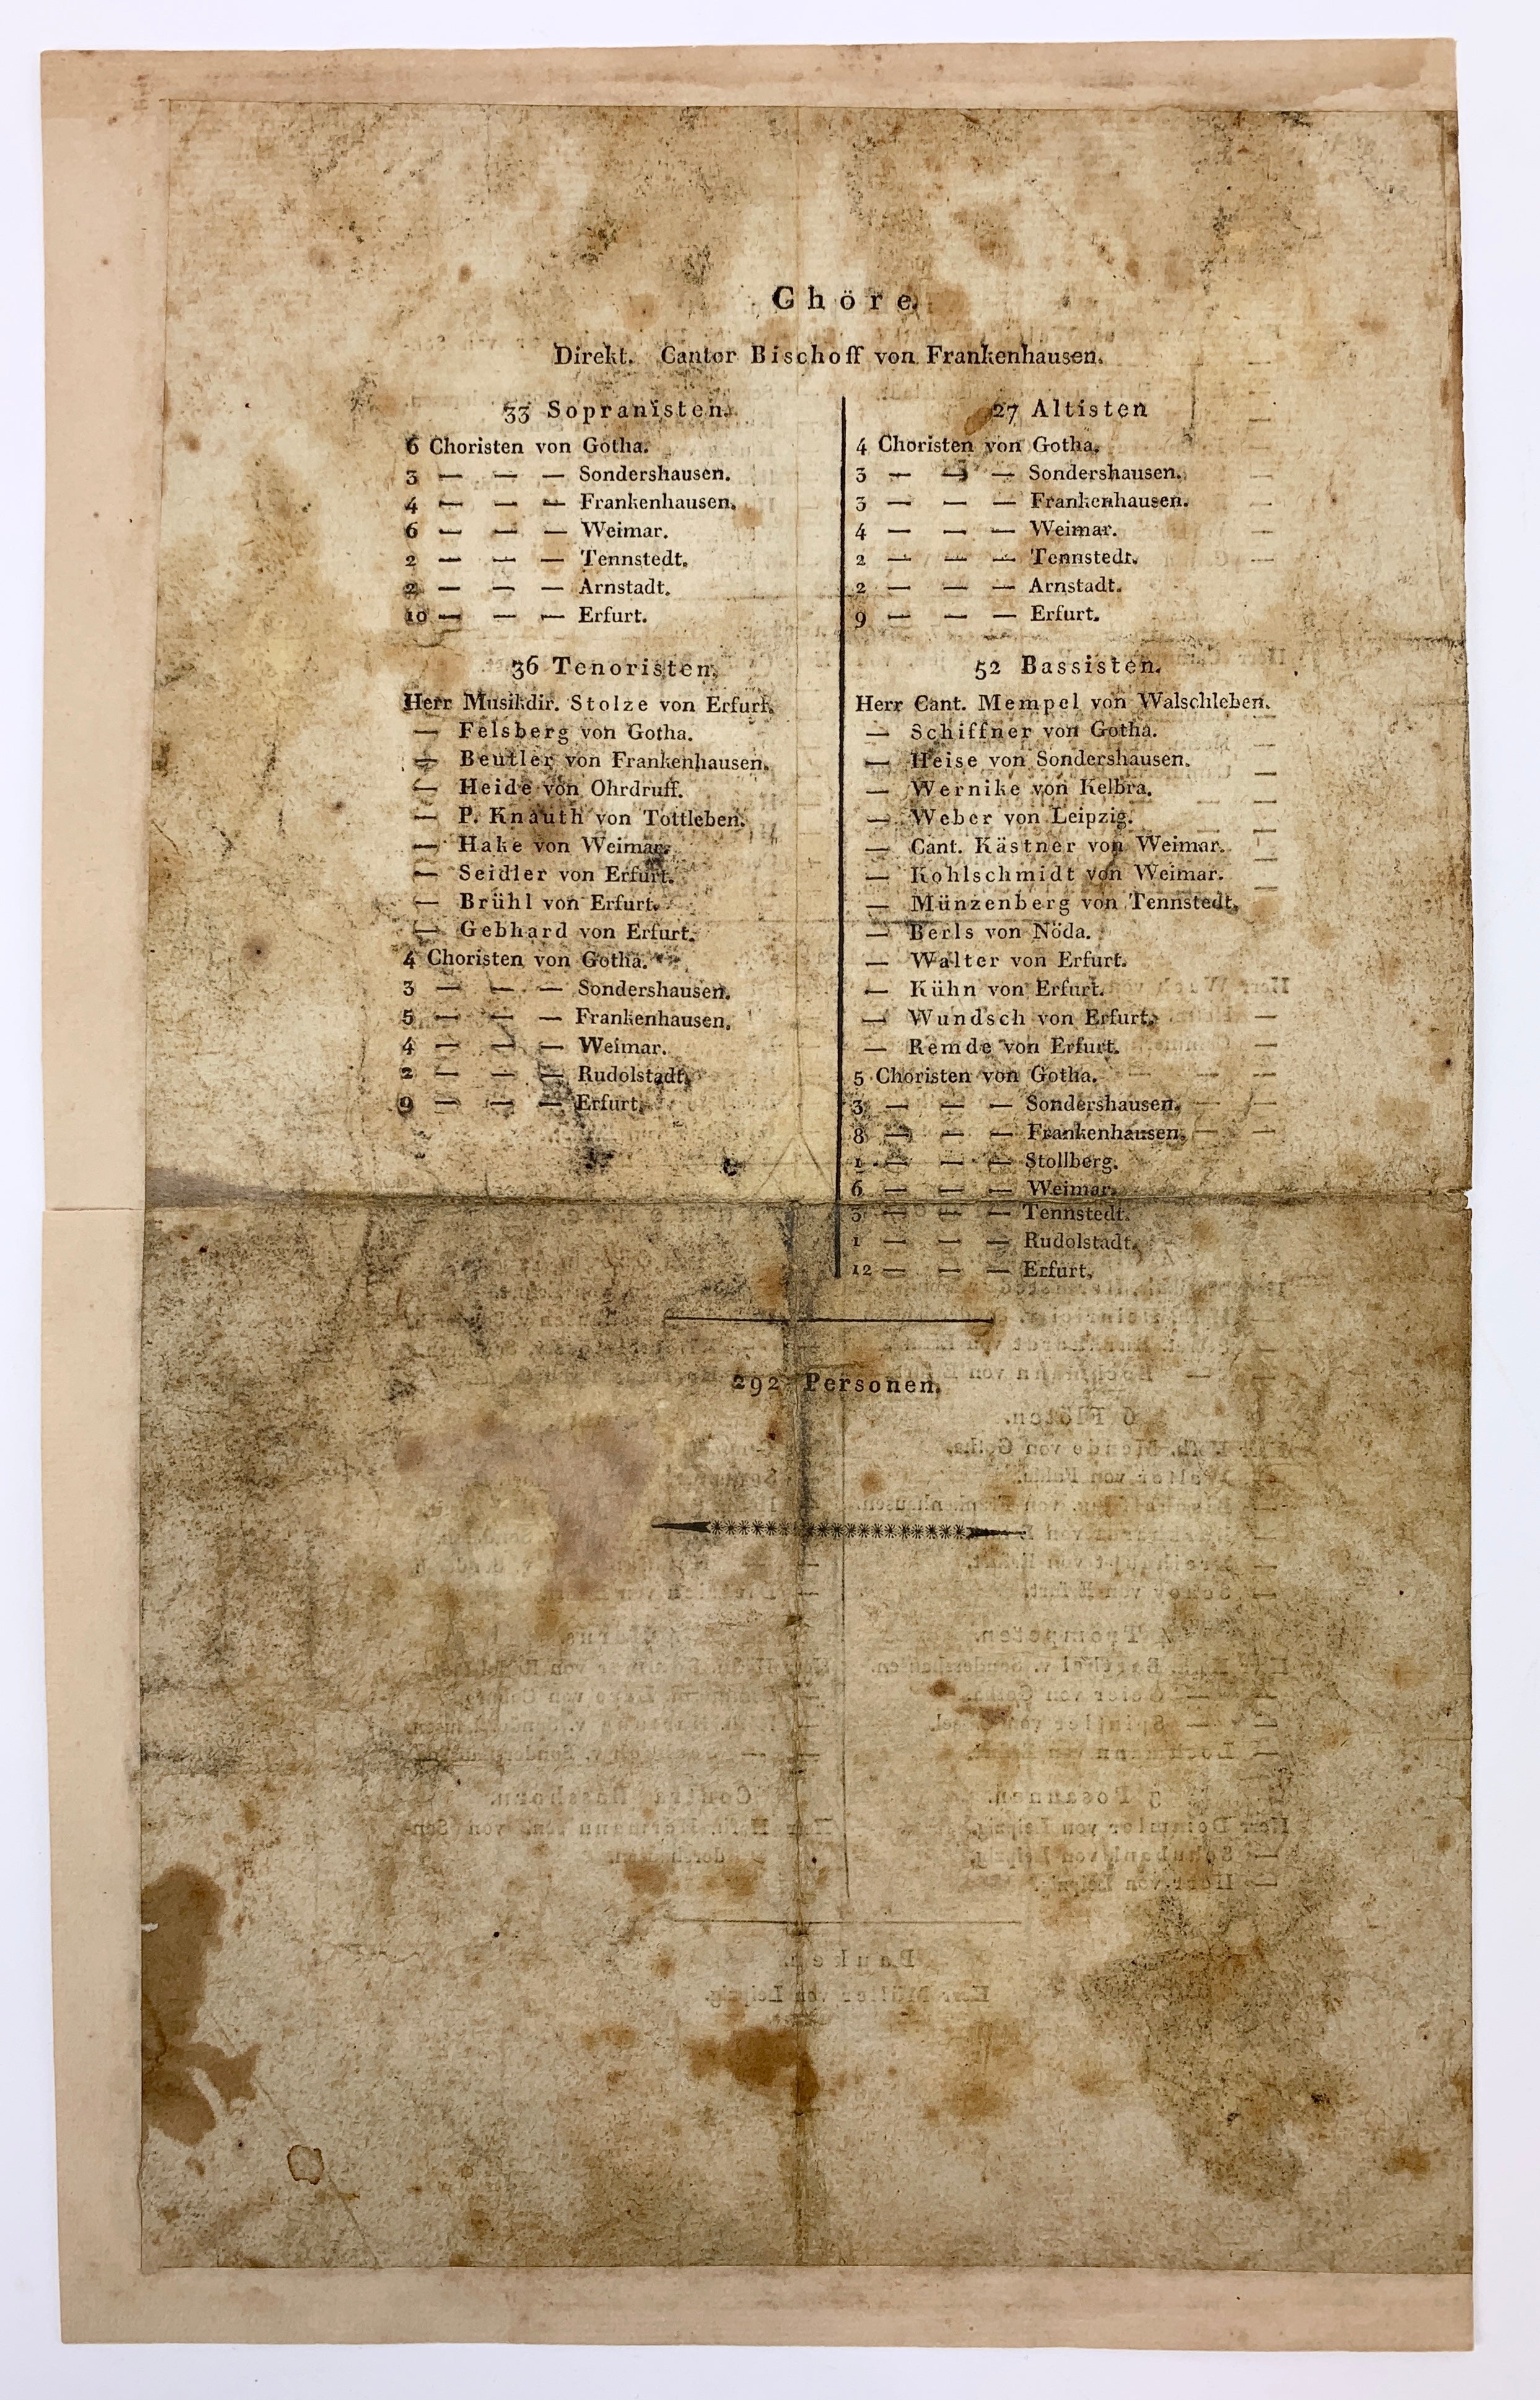 Chöre.
Direkt. Cantor Bischoff von Frankenhausen.
33 Sopranisten.
6 Choristen von Gotha.
3 — — — Sondershausen.
4 — — — Frankenhausen.
6 — — — Weimar.
2 — — — Tennstedt.
2 — — — Arnstadt.
10 — — — Erfurt.
36 Tenoristen.
Herr Musikdir. Stolze von Erfurt.
— Felsberg von Gotha.
— Beutler von Frankenhausen.
— Heide von Ohrdruff.
— P. Knauth von Tottleben.
— Hake von Weimar.
— Seidler von Erfurt.
— Brühl von Erfurt.
— Gebhard von Erfurt.
4 Choristen von Gotha.
3 — — — Sondershausen.
5 — — — Frankenhausen.
4 — — — Weimar.
2 — — — Rudolstadt.
9 — — — Erfurt.
27 Altisten
4 Choristen von Gotha.
3 — — — Sondershausen.
3 — — — Frankenhausen.
4 — — — Weimar.
2 — — — Tennstedt.
2 — — — Arnstadt.
9 — — — Erfurt.
52 Bassisten.
Herr Cant. Mempel von Walschleben.
— Schiffner von Gotha.
— Heise von Sondershausen.
— Wernike von Kelbra.
— Weber von Leipzig.
— Cant. Kästner von Weimar.
— Kohlschmidt von Weimar.
— Münzenberg von Tennstedt.
— Berls von Nöda.
— Walter von Erfurt.
— Kühn von Erfurt.
— Wundsch von Erfurt.
— Remde von Erfurt.
5 Choristen von Gotha.
3 — — — Sondershausen.
8 — — — Frankenhausen.
1 — — — Stollberg.
6 — — — Weimar.
3 — — — Tennstedt.
1 — — — Rudolstadt.
12 — — — Erfurt.
292 Personen.